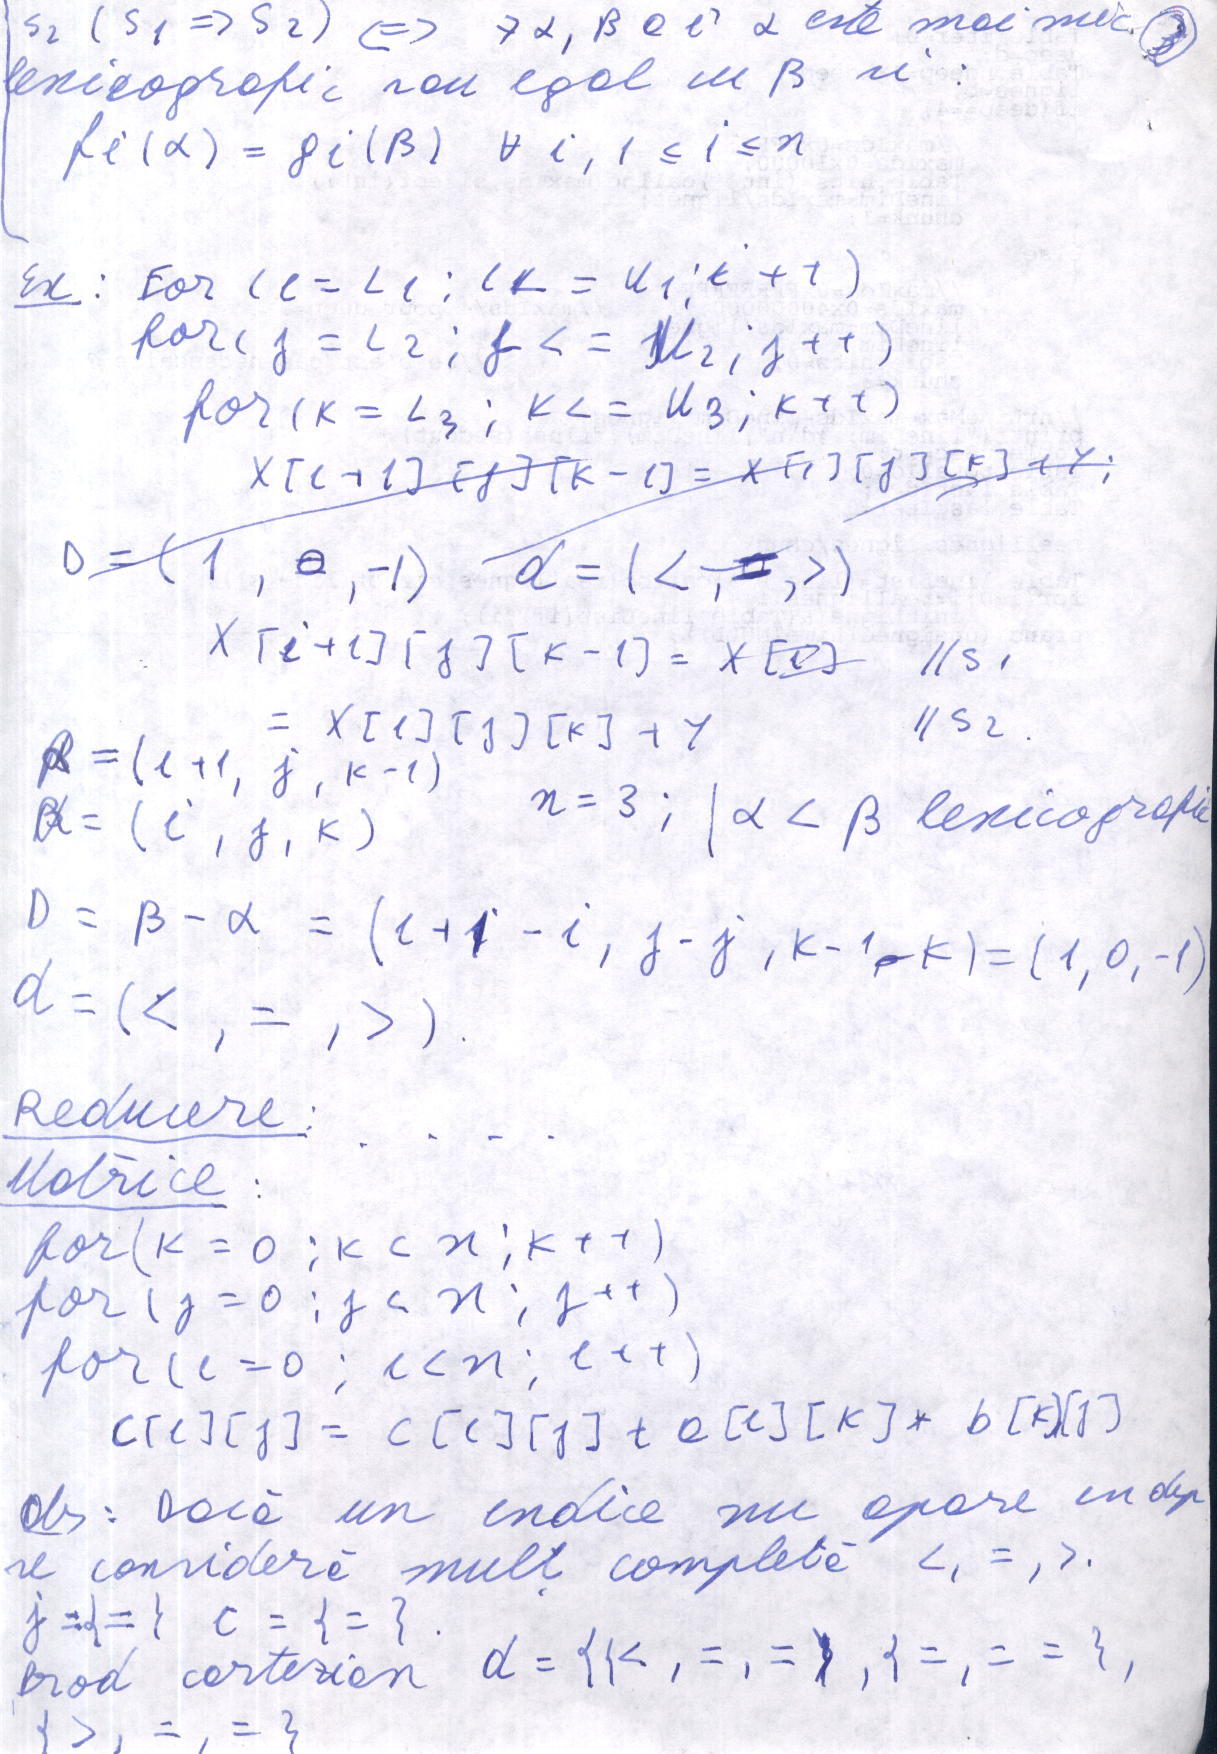 S2 (S1 => S2) <=> ∃ α, β a î α este mai mic
lexicografic sau egal cu β si :
fi(α) = gi(β) ∀ i, 1 ≤ i ≤ n
Ex : For (i = L1 ; i<= U1 ; i++)
for(j = L2 ; j <= U2 ; j++)
for(k = L3 ; k<= U3 ; k++)
X[i+1][j][k-1] = X[i][j][k]+Y;
D = (1, 0, -1) d = (<, =, >)
X[i+1][j][k-1] = X[i] // S1
= X[i][j][k] + Y // S2.
β = (i+1, j, k-1)
α = (i, j, k) n = 3 ; | α < β lexicografic
D = β - α = (i+1 - i, j-j, k-1-k) = (1, 0, -1)
d = (<, =, >).
Reducere : . . . .
Matrice :
for(k = 0 ; k < n ; k++)
for(j = 0 ; j < n ; j++)
for(i = 0 ; i < n ; i++)
c[i][j] = c[i][j] + a[i][k] * b[k][j]
Obs : Dacă un indice nu apare in dep
se consideră mulț completă <, =, >.
j = {=} i = {=}.
Prod cartezian d = {{<, =, =}, {=, = =},
{>, =, =}